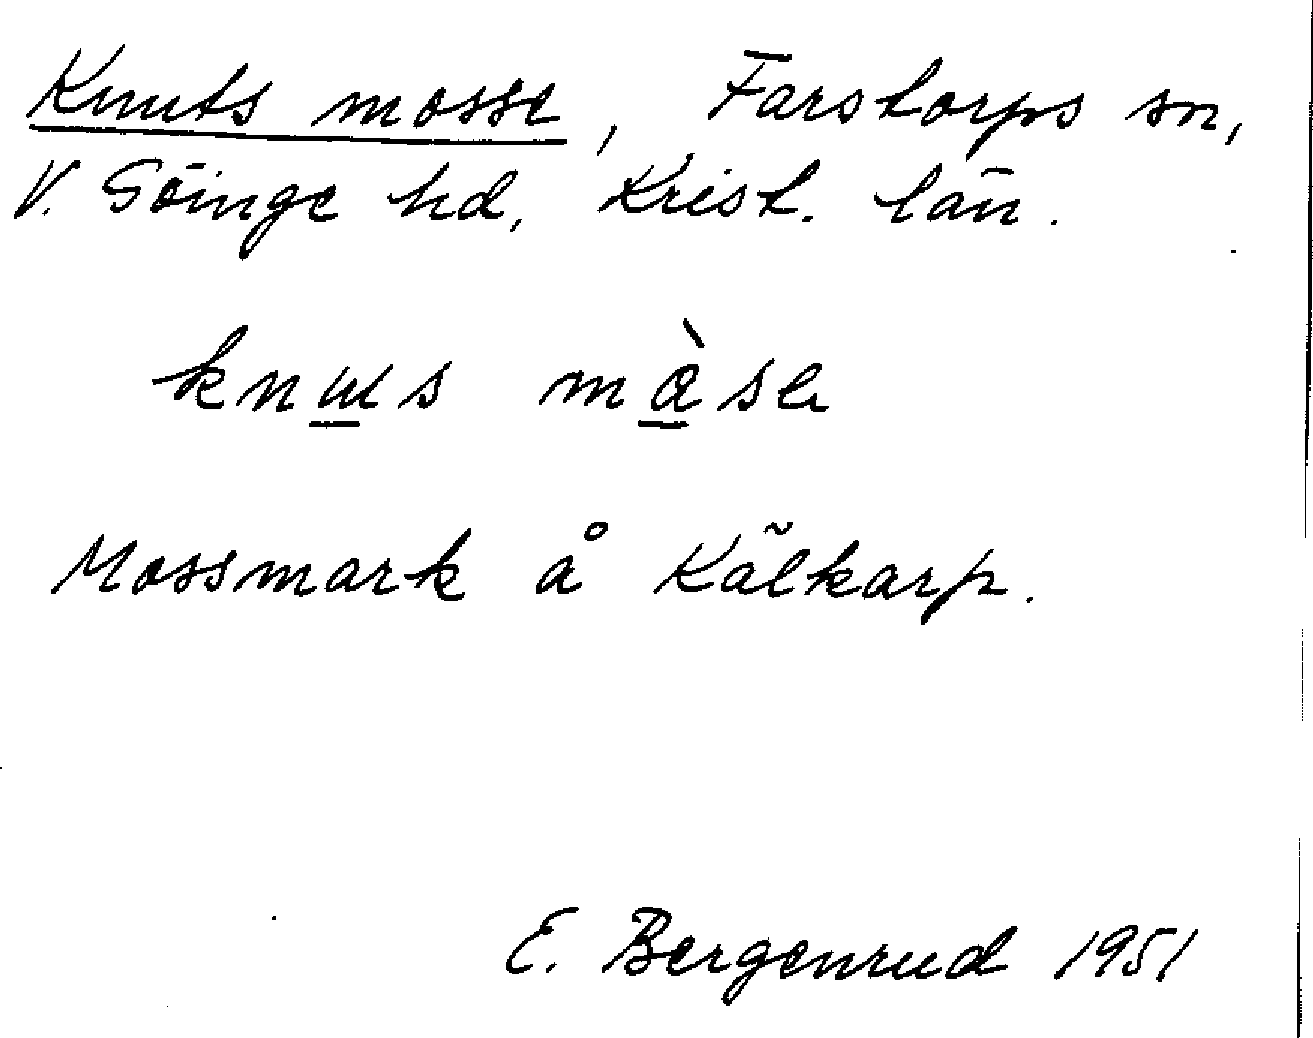 Knuts mosse, Farstorps sn,
V. Göinge hd, Krist. län.
knɯs mòsa
Mossmark å Kälkarp.
E. Bergenrud 1951